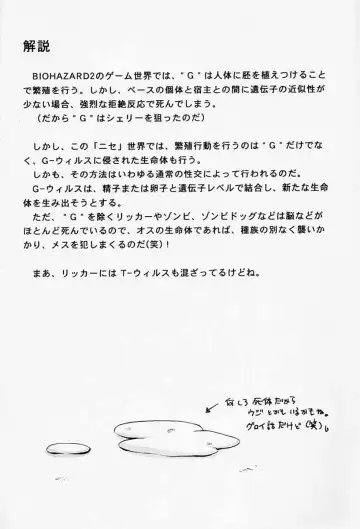 解説
BIOHAZARD2のゲーム世界では、"G"は人体に胚を植えつけること
で繁殖を行う。しかし、ベースの個体と宿主との間に遺伝子の近似性が
少ない場合、強烈な拒絶反応で死んでしまう。
（だから"G"はシェリーを狙ったのだ）
しかし、この「ニセ」世界では、繁殖行動を行うのは"G"だけでな
く、G-ウィルスに侵された生命体も行う。
しかも、その方法はいわゆる通常の性交によって行われるのだ。
G-ウィルスは、精子または卵子と遺伝子レベルで結合し、新たな生命
体を生み出そうとする。
ただ、"G"を除くリッカーやゾンビ、ゾンビドッグなどは脳などが
ほとんど死んでいるので、オスの生命体であれば、種族の別なく襲いか
かり、メスを犯しまくるのだ(笑)！
まあ、リッカーにはT-ウィルスも混ざってるけどね。
何しろ死体だから
ウジとかもいるかもね。
グロイ話だけど(笑)。